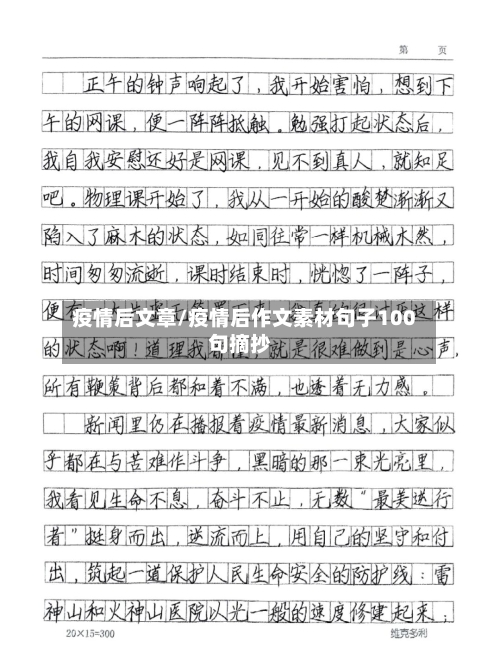 第 页
正午的钟声响起了,我开始害怕,想到下
午的网课,便一阵阵抵触。勉强打起状态后,
我自我安慰还好是网课,见不到真人,就知足
吧。物理课开始了,我从一开始的酸楚渐渐又
陷入了麻木的状态,如同往常一样机械木然,
时间匆匆流逝,课时结束时,恍惚了一阵子,
便有
这样
疫情后文章/疫情后作文素材句子100
句摘抄
的状态啊!道理我都懂,就是很难做到是心声,
所有鞭策背后都和着不满,也透着无力感。
新闻里仍在播报着疫情最新消息,大家似
乎都在与苦难作斗争,黑暗的那一束光亮里,
我看见生命不息,奋斗不止,无数“最美逆行
者”挺身而出,逆流而上,用自己的坚守和付
出,筑起一道保护人民生命安全的防护线:雷
神山和火神山医院以光一般的速度修建起来;
20×15=300 维克多利